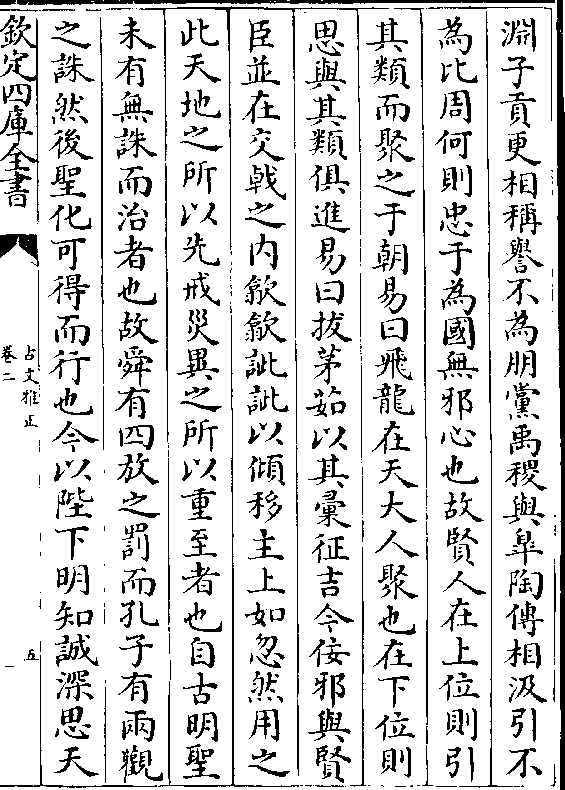 淵子貢更相稱譽不為朋黨禹稷與臯陶傳相汲引不
為比周何則忠于為國無邪心也故賢人在上位則引
其類而聚之于朝易曰飛龍在天大人聚也在下位則
思與其類俱進易曰拔茅茹以其彙征吉今佞邪與賢
臣並在交㦸之内歙歙訿訿以傾移主上如忽然用之
此天地之所以先戒災異之所以重至者也自古明聖
未有無誅而治者也故舜有四放之罰而孔子有兩觀
之誅然後聖化可得而行也今以陛下明知誠深思天
欽定四庫全書
古文雅正
卷二
五